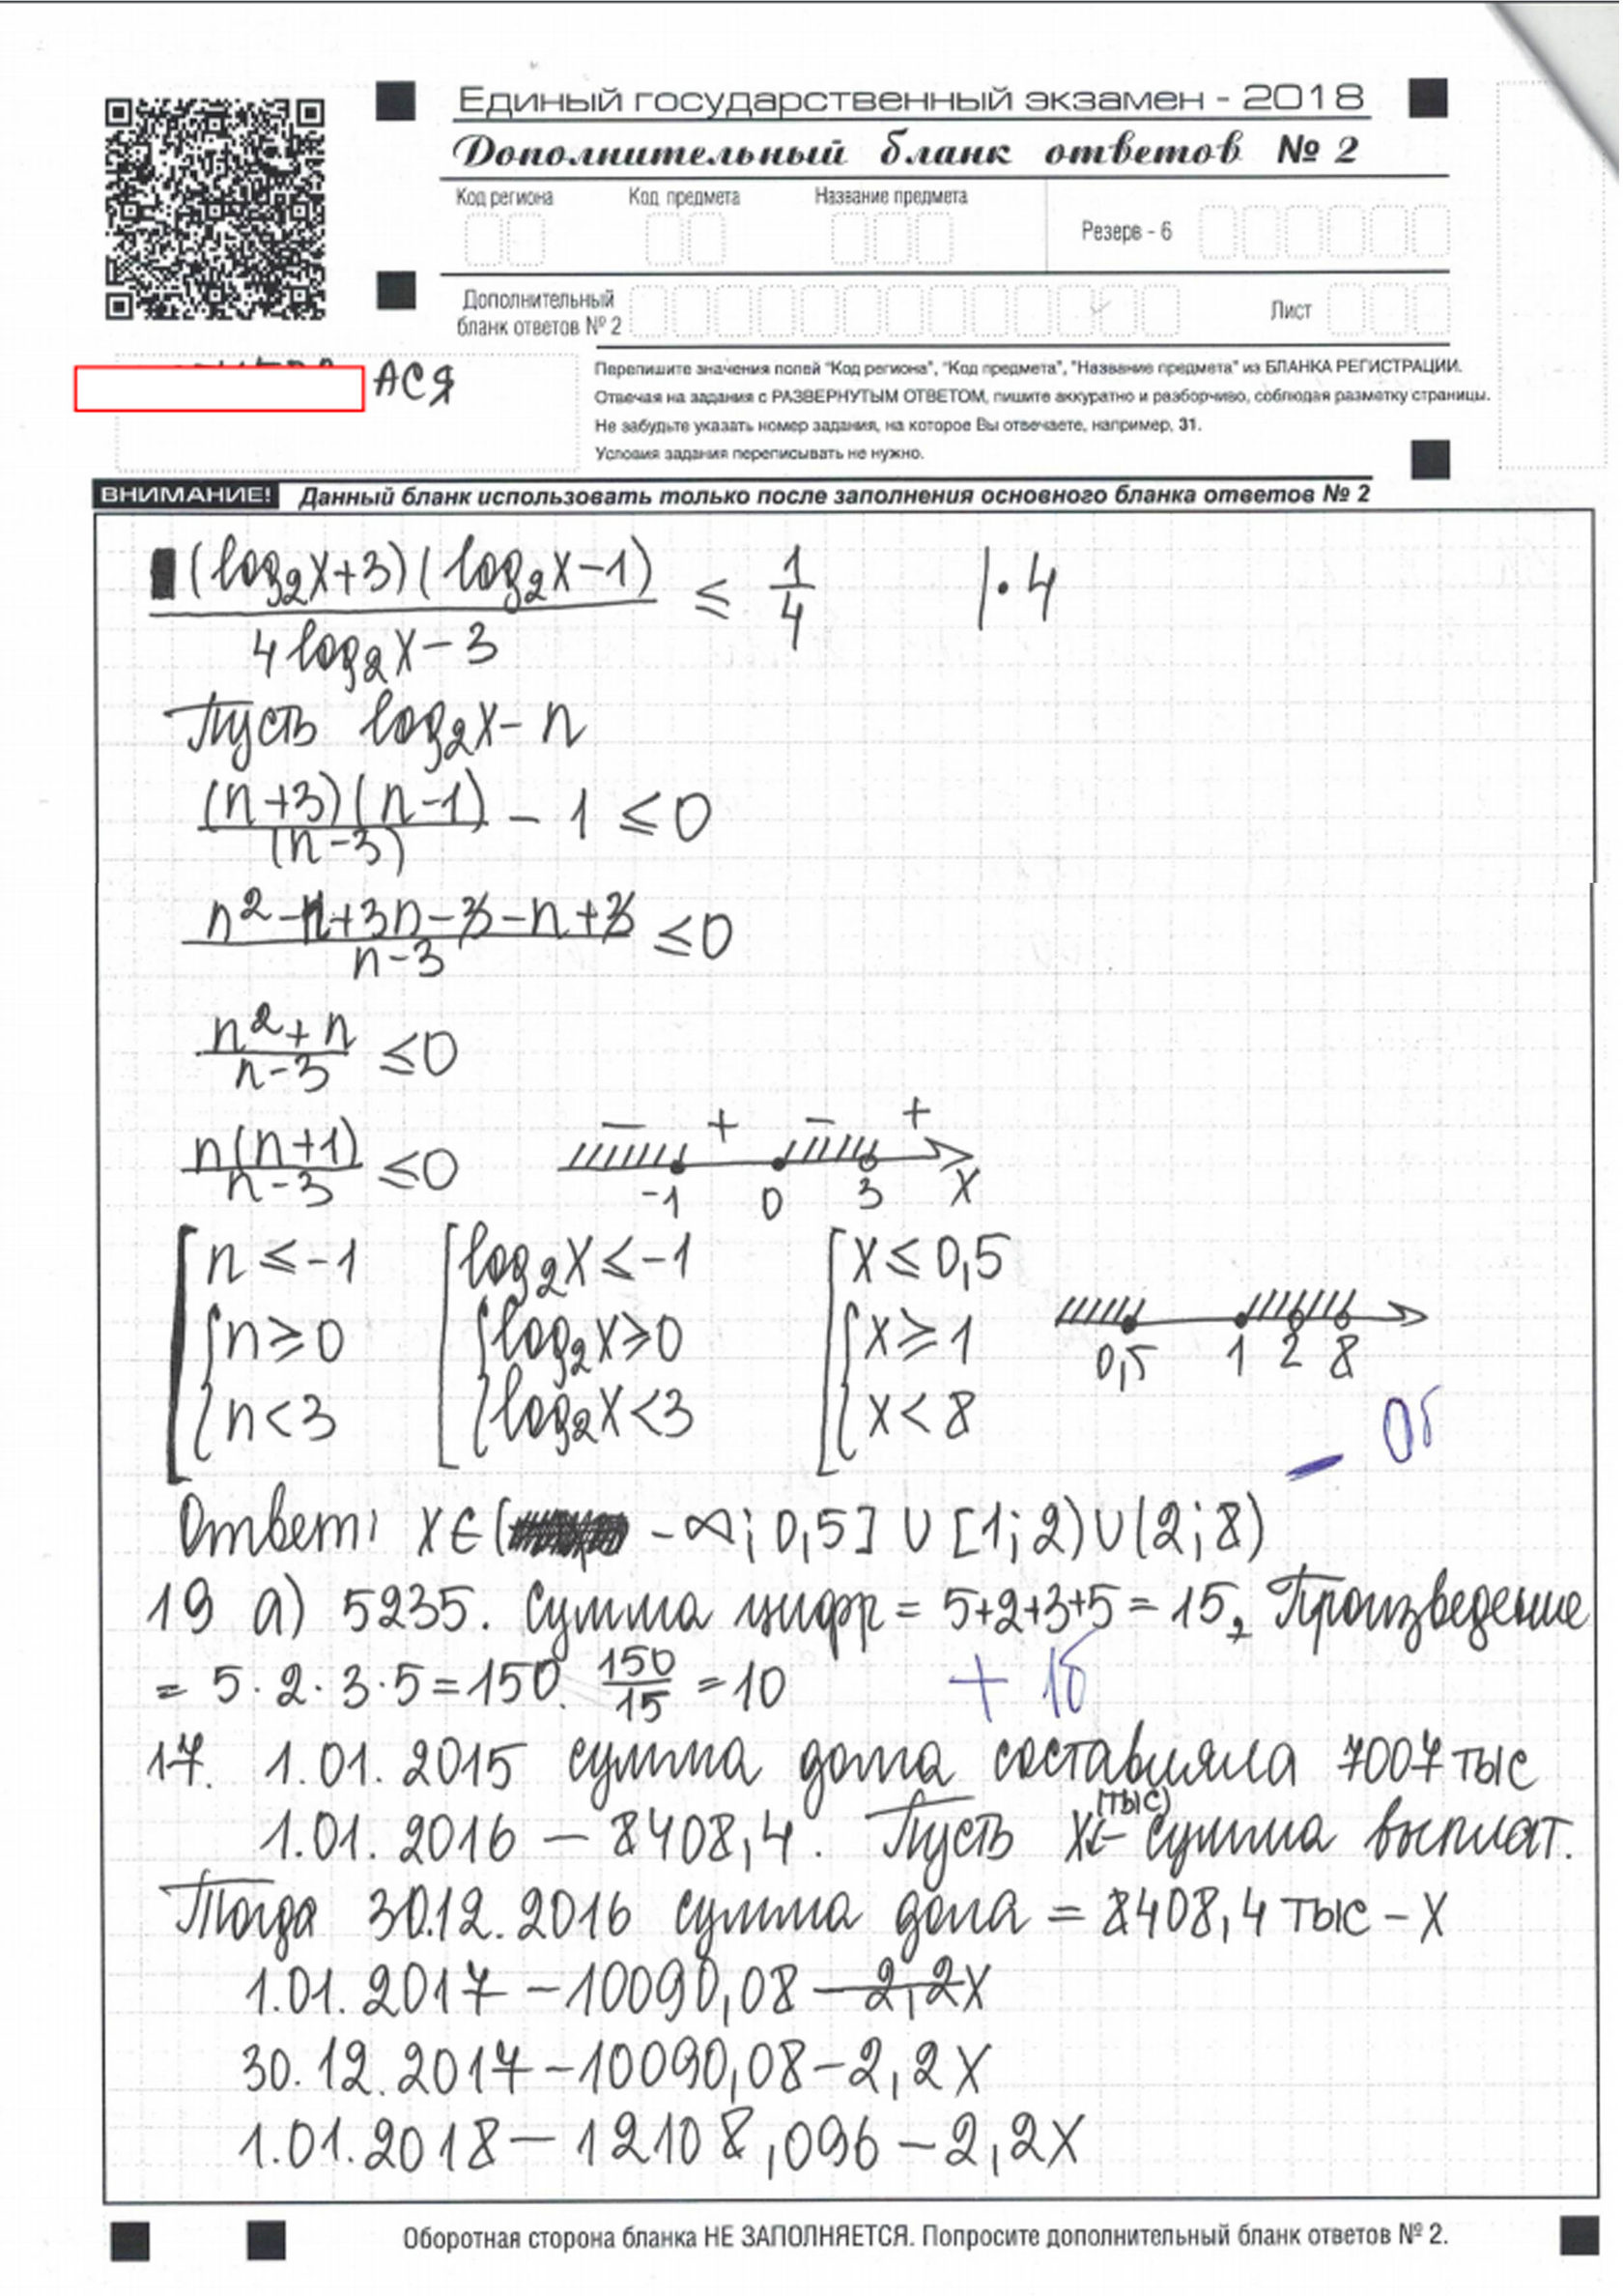 Единый государственный экзамен - 2018
Дополнительный бланк ответов № 2
Код региона Код предмета Название предмета
Резерв - 6
Дополнительный
бланк ответов № 2
Лист
АСЯ
Перепишите значения полей "Код региона", "Код предмета", "Название предмета" из БЛАНКА РЕГИСТРАЦИИ.
Отвечая на задания с РАЗВЕРНУТЫМ ОТВЕТОМ, пишите аккуратно и разборчиво, соблюдая разметку страницы.
Не забудьте указать номер задания, на которое Вы отвечаете, например, 31.
Условия задания переписывать не нужно.
ВНИМАНИЕ! Данный бланк использовать только после заполнения основного бланка ответов № 2
(log₂x+3)(log₂x-1)
4log₂x-3
≤ 1/4 |·4
Пусть log₂x - n
(n+3)(n-1)
(n-3)
- 1 ≤ 0
n²-n+3n-3-n+3
n-3
≤0
n²+n
n-3
≤0
n(n+1)
n-3
≤0
− + − +
-1 0 3 x
n ≤ -1 log₂x ≤ -1 x ≤ 0,5
n ≥ 0 log₂x ≥ 0 x ≥ 1
n < 3 log₂x < 3 x < 8
0,5 1 2 8
− 0б
Ответ: x∈(-∞; 0,5] ∪ [1; 2)∪(2; 8)
19 а) 5235. Сумма цифр = 5+2+3+5=15, Произведение
= 5·2·3·5=150. 150/15 = 10
+ 1б
17. 1.01.2015 сумма долга составляла 7007 тыс
1.01.2016 – 8408,4. Пусть x (тыс) - сумма выплат.
Тогда 30.12.2016 сумма долга = 8408,4 тыс - x
1.01.2017 – 10090,08 – 2,2x
30.12.2017 – 10090,08 – 2,2x
1.01.2018 – 12108,096 – 2,2x
Оборотная сторона бланка НЕ ЗАПОЛНЯЕТСЯ. Попросите дополнительный бланк ответов № 2.